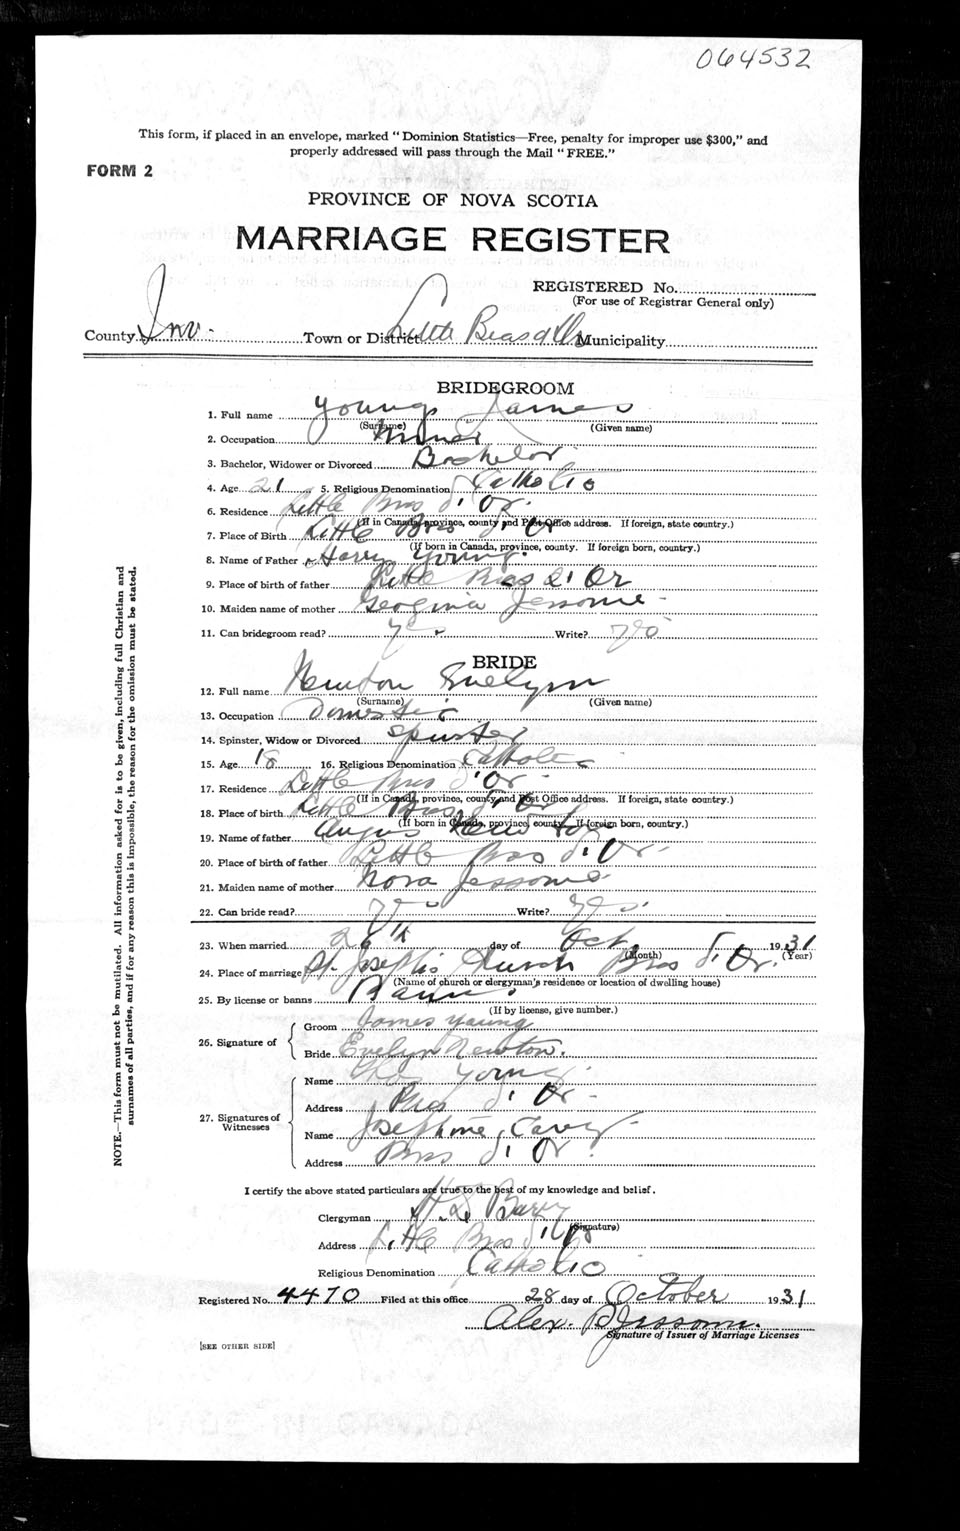 064532
This form, if placed in an envelope, marked "Dominion Statistics—Free, penalty for improper use $300," and
properly addressed will pass through the Mail "FREE."
FORM 2
PROVINCE OF NOVA SCOTIA
MARRIAGE REGISTER
REGISTERED No.
(For use of Registrar General only)
County Inv. Town or District Little Bras d'Or Municipality
BRIDEGROOM
1. Full name Young James
(Surname) (Given name)
2. Occupation Miner
3. Bachelor, Widower or Divorced Bachelor
4. Age 21 5. Religious Denomination Catholic
6. Residence Little Bras d'Or
(If in Canada, province, county and Post Office address. If foreign, state country.)
7. Place of Birth Little Bras d'Or
(If born in Canada, province, county. If foreign born, country.)
8. Name of Father Harry Young
9. Place of birth of father Little Bras d'Or
10. Maiden name of mother Georgina Jessome
11. Can bridegroom read? yes Write? yes
BRIDE
12. Full name Newton Evelyn
(Surname) (Given name)
13. Occupation Domestic
14. Spinster, Widow or Divorced Spinster
15. Age 18 16. Religious Denomination Catholic
17. Residence Little Bras d'Or
(If in Canada, province, county and Post Office address. If foreign, state country.)
18. Place of birth Little Bras d'Or
(If born in Canada, province, county. If foreign born, country.)
19. Name of father Angus Newton
20. Place of birth of father Little Bras d'Or
21. Maiden name of mother Nora Jessome
22. Can bride read? yes Write? yes
23. When married 26th day of Oct. 1931
(Month) (Year)
24. Place of marriage St. Joseph's Church Bras d'Or
(Name of church or clergyman's residence or location of dwelling house)
25. By license or banns Banns
(If by license, give number.)
26. Signature of
Groom James Young
Bride Evelyn Newton.
27. Signatures of Witnesses
Name Young
Address Bras d'Or
Name Josephine Carey
Address Bras d'Or
I certify the above stated particulars are true to the best of my knowledge and belief.
Clergyman
(Signature)
Address Little Bras d'Or
Religious Denomination Catholic
Registered No. 4470 Filed at this office 28 day of October 1931
Alex. Jessome.
Signature of Issuer of Marriage Licenses
[SEE OTHER SIDE]
NOTE.—This form must not be mutilated. All information asked for is to be given, including full Christian and
surnames of all parties, and if for any reason this is impossible, the reason for the omission must be stated.